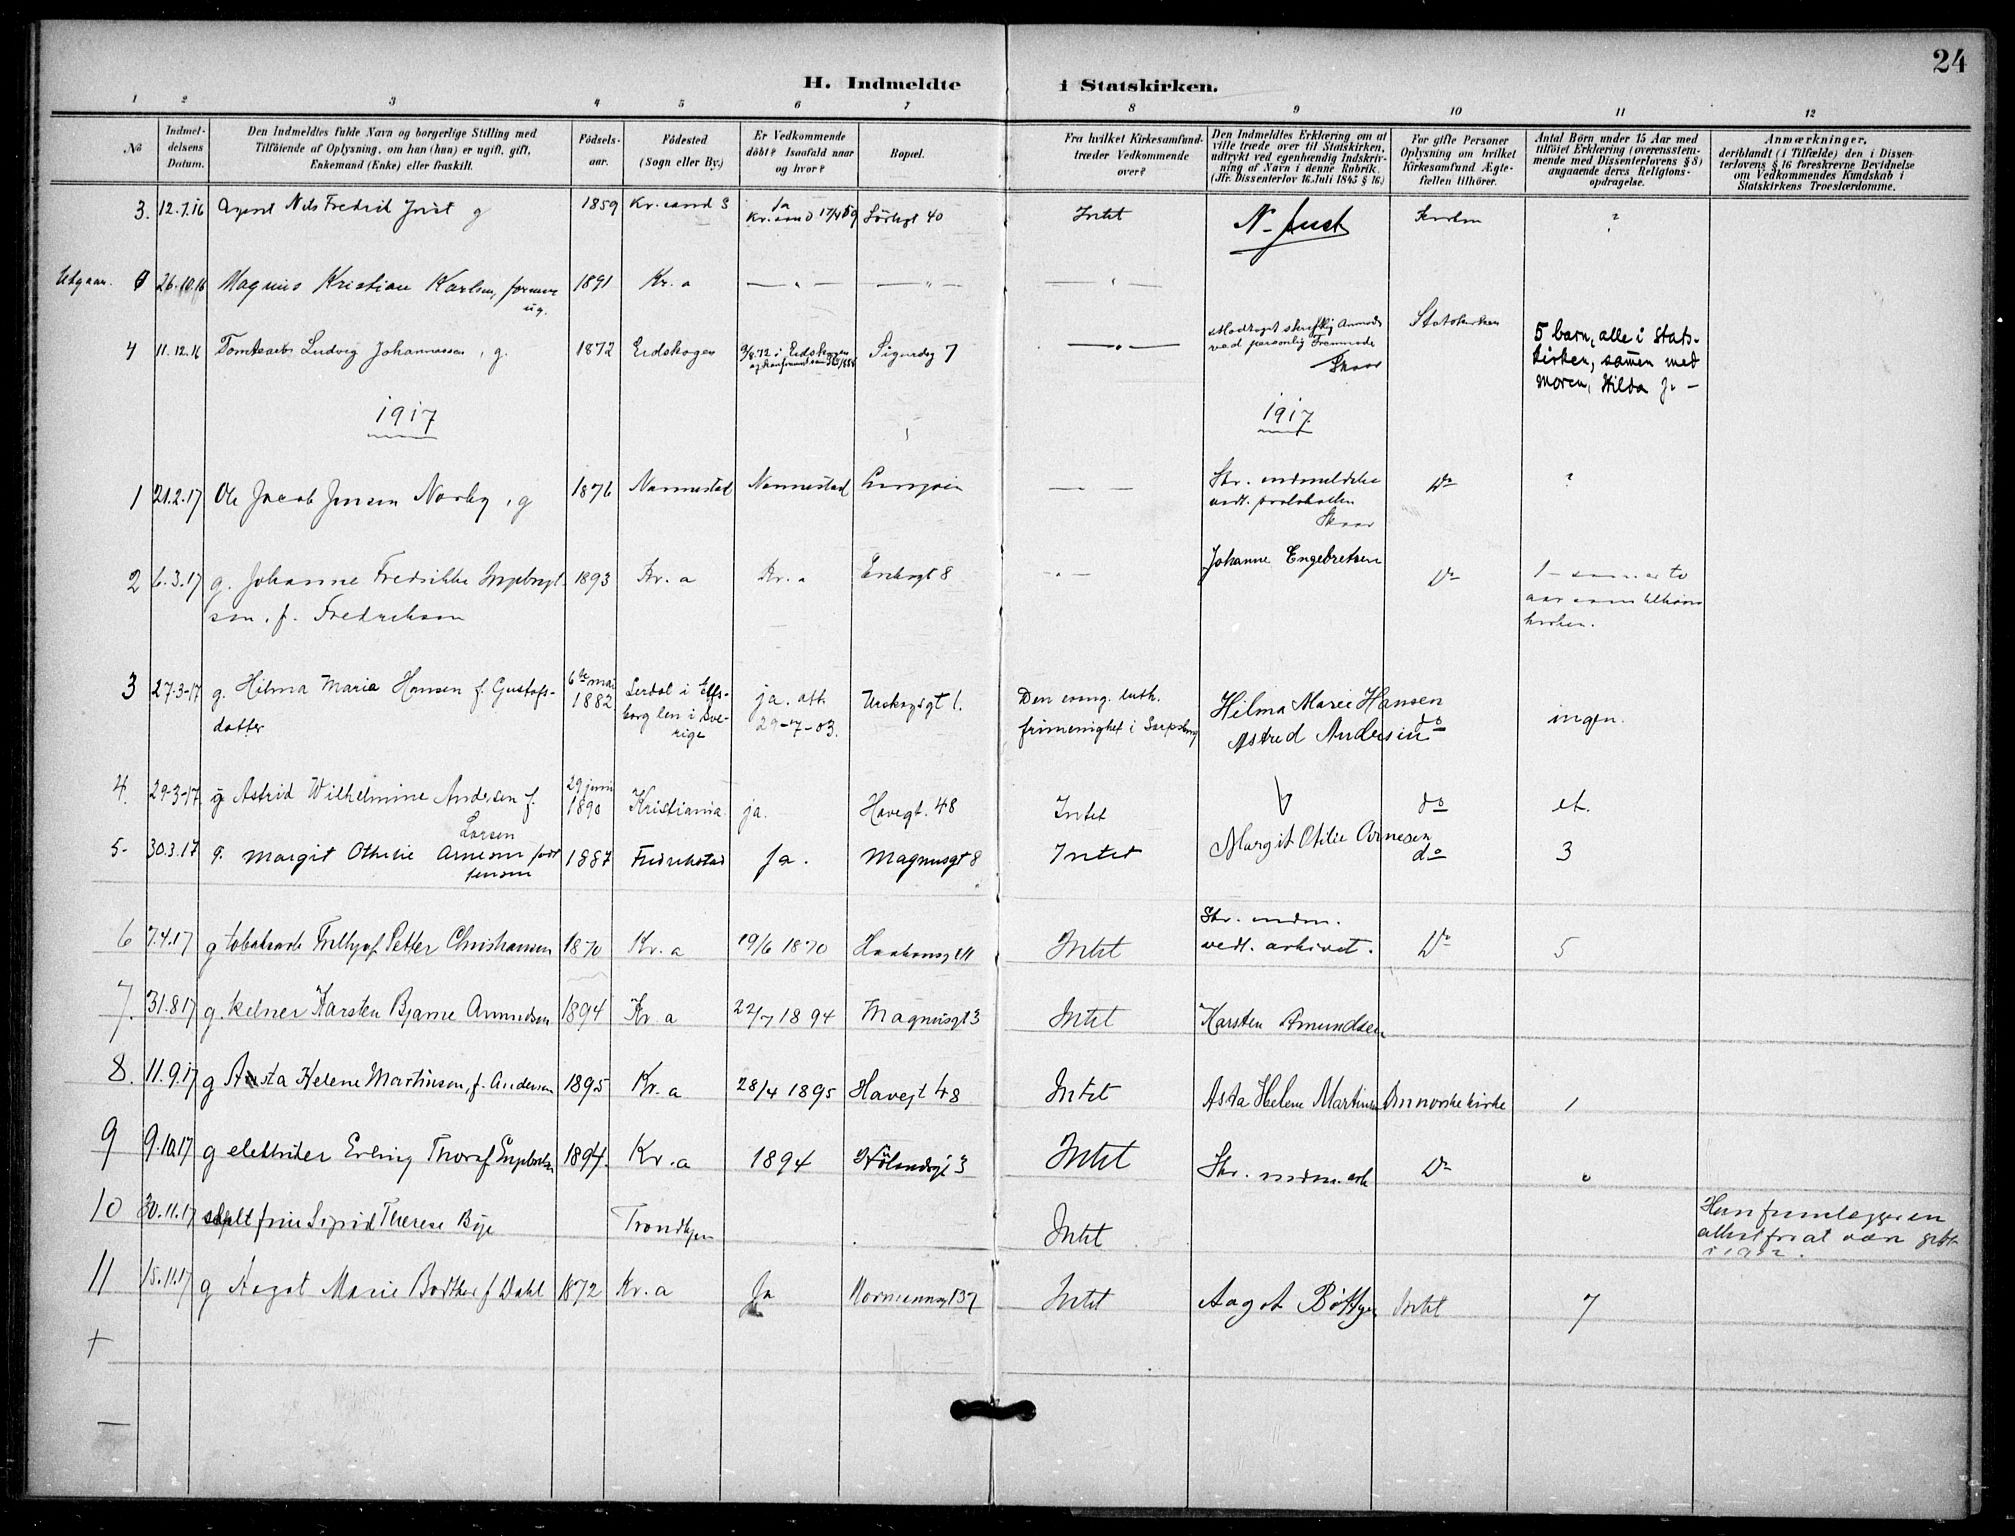 24
H. Indmeldte i Statskirken.
1 2 3 4 5 6 7 8 9 10 11 12
No
Indmel-
delsens
Datum.
Den Indmeldtes fulde Navn og borgerlige Stilling med
Tilföiende af Oplysning, om han (hun) er ugift, gift,
Enkemand (Enke) eller fraskilt.
Födsels-
aar.
Födested
(Sogn eller By.)
Er Vedkommende
döbt? Isaafald naar
og hvor?
Bopæl.
Fra hvilket Kirkesamfund
træder Vedkommende
over?
Den Indmeldtes Erklæring om at
ville træde over til Statskirken,
udtrykt ved egenhændig Indskriv-
ning af Navn i denne Rubrik.
(Jfr. Dissenterlov 16. Juli 1845 § 16.)
For gifte Personer
Oplysning om hvilket
Kirkesamfund Ægte-
fællen tilhörer.
Antal Börn under 15 Aar med
tilföiet Erklæring (overensstem-
mende med Dissenterlovens § 8)
angaaende deres Religions-
opdragelse.
Anmærkninger,
deriblandt (i Tilfælde) den i Dissen-
terlovens § 16 foreskrevne Bevidnelse
om Vedkommendes Kundskab i
Statskirkens Troeslærdomme.
3. 12.7.16 Agent Nils Fredrik Just g 1859 Kr. sand S Ja Kr. sand 17/4 59 40 Intet N. Just ?
Udgaar. 26.10.16 Magnus Kristian Karlsen, ug. 1891 Kr. a — " — — " — — " —
4 11.12.16 Ludvig Johannessen, g. 1872 Eidskogen 9/8.72 i Eidskogen Sigurdsg 7 — " — Modtaget skriftlig
ved personlig Fremmøde
Skaar
Statskirken
5 barn, alle i Stats-
kirken, samen med
moren, Hilda J. —
1917 1917
1 21.2.17 Ole Jacob Jensen Norby, g 1876 Nannestad Nannestad — — Skr. indmeldelse
vedl. protokollen
Skaar
Do ?
2 6.3.17 g. Johanne Fredrikke Ingebregt-
sen, f. Fredriksen
1893 Kr. a Kr. a Enebgt 8 — " — Johanne Engebretsen Do 1 —
kirken.
3 27-3-17 g. Hilma Maria Hansen f. Gustafs-
datter
6te mai
1882
Lerdal i Elfs-
borg len i Sve-
rige
ja. att.
29-7-03.
Urskogsgt 1.
Den evang. luth.
frimenighet i Sarpsborg
Hilma Marie Hansen do ingen.
Astrid Andersen
4. 29-3-17 g Astrid Wilhelmine Andersen f.
Larsen
29 juni
1890
Kristiania ja. Havegt. 48 Intet do et.
5- 30.3.17 g. Margit Othelie Arnesen født
Jensen
1887 Fredrikstad Ja. Magnusgt 8 Intet Margit Otilie Arnesen do 3
6 7.4.17 g tobaksarb Petter Christiansen 1870 Kr. a 19/6 1870 Haakonsgt 11 Intet Skr. indm.
vedl. arkivet.
Do 5
7. 31.8.17 g. kelner Karsten Bjarne Amundsen 1894 Kr. a 22/7 1894 Magnusgt 3 Intet Karsten Amundsen
8. 11.9.17 g Asta Helene Martinsen, f. Andersen 1895 Kr. a 28/4 1895 Havegt 48 Intet Asta Helene Martinsen Den norske kirke 1
9 9.10.17 g elektriker Erling Thoralf 1894. Kr. a 1894 Hölandsgt 3 Intet Skr. indm. Do 0
10 30.11.17 Sigrid Therese Bøje Trondhjem Intet
11 15.11.17 g Aagot Marie f Dahl 1872 Kr. a Ja Normannsgt 37 Intet Aagot Bøttger Intet 7